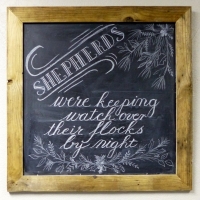 SHEPHERDS
were keeping
watch over
their flocks
by night